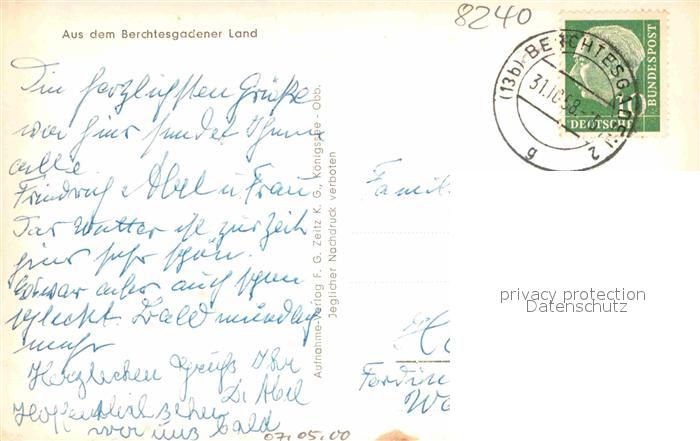 8240
Aus dem Berchtesgadener Land
(13b) BERCHTESGADEN 2
31.10.58
g
10
DEUTSCHE
BUNDESPOST
Die herzlichsten Grüße
von hier sendet Ihnen
alle
Friedrich Abel u. Frau
Das Wetter ist zur Zeit
hier sehr schön.
Es war aber auch schon
schlecht. Bald mündlich
mehr
Herzlichen Gruß Ihr
D. Abel
Hoffentlich sehen
wir uns bald
07.05.00
Aufnahme-Verlag F. G. Zeitz K. G., Königssee - Obb.
Jeglicher Nachdruck verboten
Famil
Ferdin
privacy protection
Datenschutz